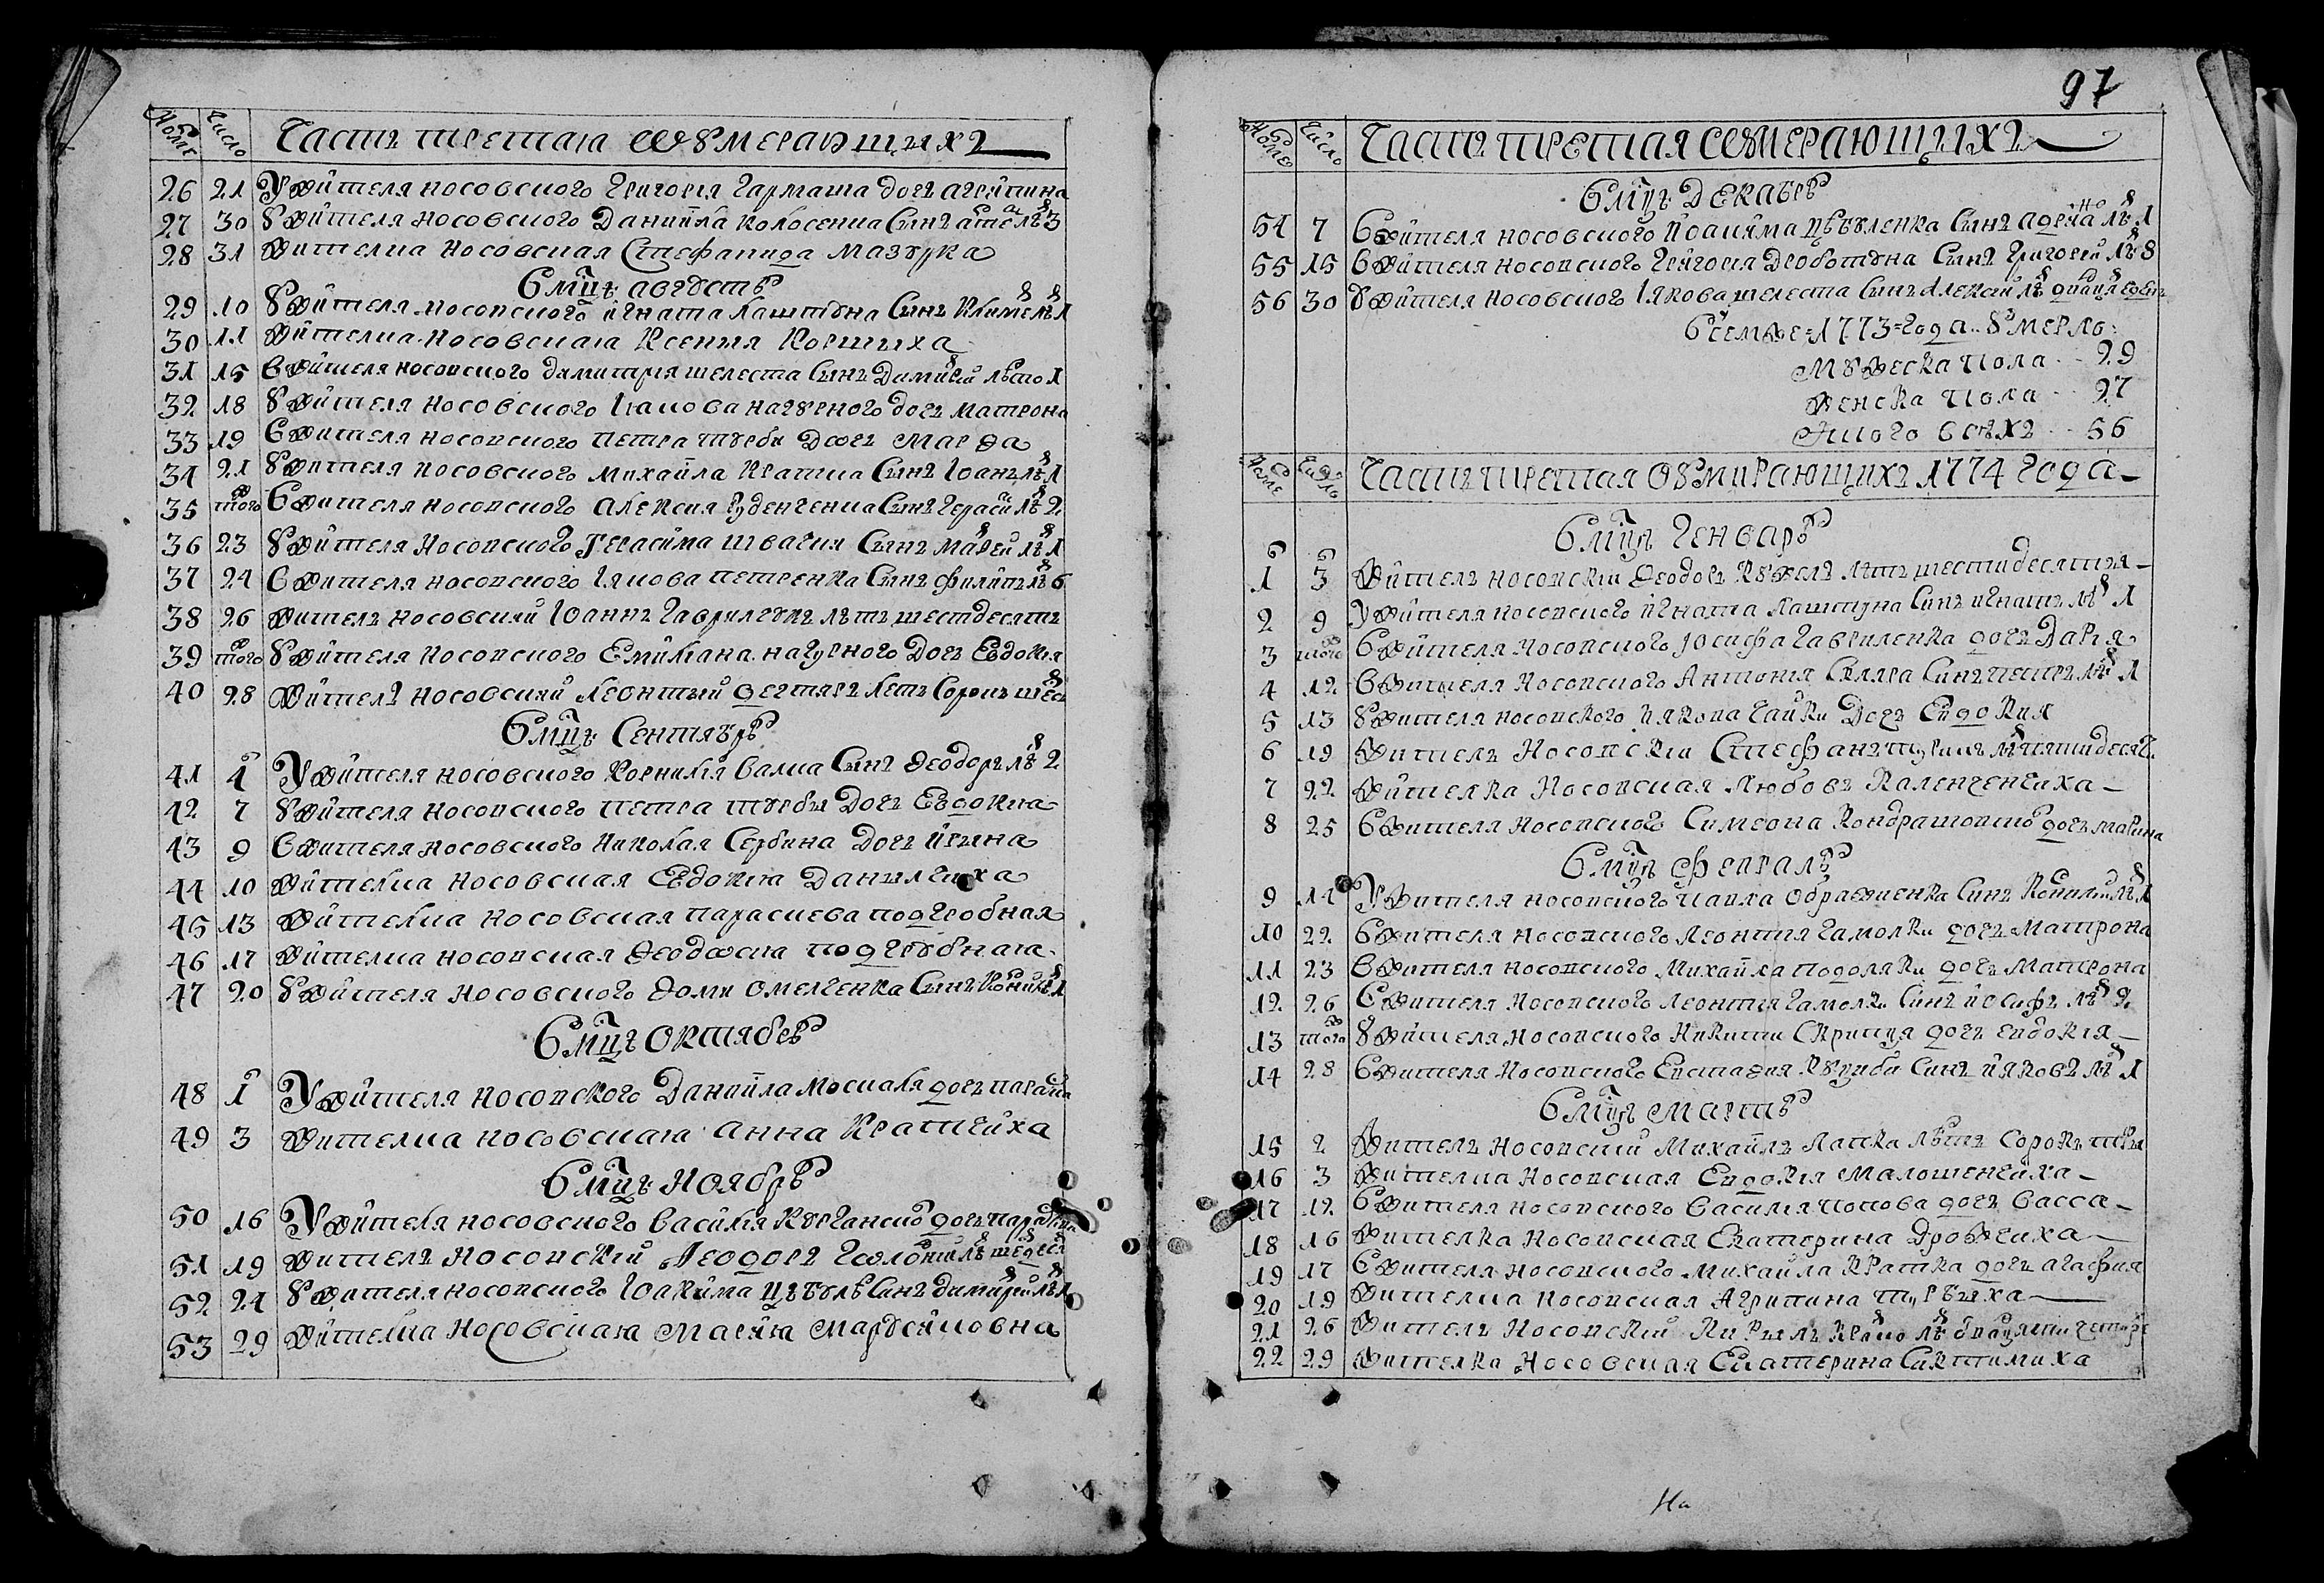 Номꙋ Число Часть третая ѡ ꙋмераюшихъ
26 21 Ужи́теля носовского Григорія Гармаша дочъ агрипина
27 30 Ꙋ жи́теля носовского Даниила Колосенка Сынъ лѣтъ 3
28 31 жителка носовская Стефанида Мазꙋрка
В мцѣ авгꙋстѣ
29 10 Ꙋ жителя носовского игната Лаштꙋна Сынъ Климе лѣ 1
30 11 жителка носовская Ксения Коршиха
31 15 В жителя носовского димитрия шелеста Сынъ Димитрїй лѣто 1
32 18 Ꙋ жителя носовского Іакова нагꙋрного дочъ матрона
33 19 В жителя носовского петра тꙋрби Дочъ Марѳа
34 21 Ꙋ жителя носовского михайла Кратка Сынъ Іоанъ лѣ 1
35 того В жителя носовского алексия Рꙋденченка Сынъ Гераси лѣ 2
36 23 Ꙋ жителя носовского Герасима швачки Сынъ Матѳей лѣ 1
37 24 В жителя носовского Іякова петренка Сынъ филипъ лѣ 6
38 26 жителъ носовский Іоаннъ Гаврилꙋкъ лѣтъ шестдесятъ
39 того Ꙋ жителя носовского Емилиана нагурного Дочъ Евдокия
40 28 Жителъ носовский леонтий дегтяръ летъ Сорокъ шесъ
В мцѣ Сентябрѣ
41 4 Ужителя носовского Корнилія Валка Сынъ Ѳеодоръ лѣ 2
42 7 Ꙋ жителя носовского петра тꙋрбы Дочъ Евдокиа
43 9 В жителя носовского Николая Сербина Дочъ Ирина
44 10 Жителка носовская Евдокия Данилчиха
45 13 жителка носовская параскева подгробная
46 17 жителка носовская Ѳеодосия подгрꙋбная
47 20 Ꙋ жителя носовского Ѳоми Омелченка Сынъ лѣ 1
В мцѣ Октябрѣ
48 1 Ужителя носовского Даниила Москаля дочъ параск
49 3 жителка носовская Анна Кратчиха
В мцѣ Ноябрѣ
50 16 Ужителя носовского василія Кꙋрганско дочъ параски
51 19 жителъ носовский Ѳеодоръ лѣ шедес
52 24 Ꙋ жителя носовского Іоакима Цѣвꙋлѣ Сынъ димитрей лѣ 1
53 29 жителка Носовская Мария Мардѣиловна
97
Номꙋ Число Часть третая ѡ ꙋмераюшихъ
В мцѣ Декабрѣ
54 7 В жителя носовского Иоакима Цѣвꙋленка Сынъ лѣ 1
55 15 В жителя носовского Григория Дроботꙋна Сынъ Григорей лѣ 8
56 30 Ꙋ жителя носовского Іякова шелеста Сынъ Алексѣй лѣ дватця еденъ
В семъ же 1773 года ꙋмерло
Мꙋжеска пола 29
Женска пола 27
Ѡного всѣхъ 56
Номе Число Часть третая О ꙋмирающихъ 1774 года
В мцѣ Генварѣ
1 3 Жителъ носовский Ѳеодоръ Кꙋжелъ лѣтъ шестидесятъ
2 9 У жителя носовского игната Лаштуна Синъ игнатъ лѣ 1
3 того В жителя Носовского Іосифа Гавриленка дочъ Дария
4 12 В жителя Носовского Антония Скляра Синъ петръ лѣ 1
5 13 Ꙋ жителя носовского иякова Гайки Дочъ Евдокия
6 19 Жителъ Носовский Стефанъ лѣ пятидесят
7 22 Жителка Носовская Любовъ Каленченчиха
8 25 В жителя носовского Симеона Кондрашовско дочъ марина
В мцѣ февралѣ
9 14 У жителя носовского павла Ображиенка Синъ лѣ 1
10 22 В жителя носовского Леонтия Гамолки дочъ Матрона
11 23 В жителя носовского Михаила подоляки дочъ Матрона
12 26 В жителя Носовского Леонтия Гамолки Синъ иосифъ лѣ 2
13 того Ꙋ жителя носовского Никити Скрипця дочъ евдокія
14 28 В жителя Носовского Евстафия Кꙋриби Синъ ияковъ лѣ 1
В мцѣ Мартѣ
15 2 Жителъ Носовский Михаилъ Лапка лѣтъ Сорокъ три
16 3 Жителка Носовская Евдокия Малошенчиха
17 12 В жителя Носовского Василия попова дочъ Васса
18 16 Жителка Носовская Екатерина Дробчиха
19 17 В жителя Носовского Михаила Кратка дочъ агафия
20 19 Жителка носовская Агрипина
21 26 Жителъ Носовский Кирилъ лѣ двацяти четири
22 29 Жителка Носовская Екатерина
На